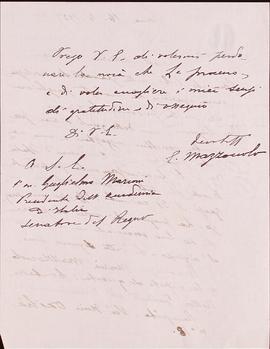 Prego V. E. di volermi perdo
nare la noia che Le procuro,
e di voler accogliere i miei sensi
di gratitudine e di ossequio
Di V. E.
A S. E.
Guglielmo Marconi
Presidente Dell'Accademia
D'Italia
Senatore del Regno